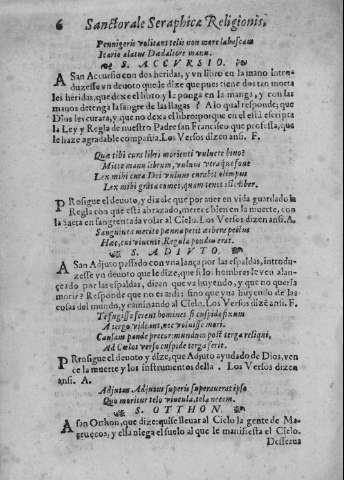 6 Sanctorale Seraphicæ Religionis.
Pennigeris volitans telis non more labascam
Icario alatus Dædaliove manu.
S. ACCVRSIO.
A San Accursio con dos heridas, y vn libro en la mano Intro-
duzesse vn deuoto que le dize que pues tiene dos tan mortales
les heridas, que dexe el libro y le ponga en la manga, y con las
manos detenga la sangre de las llagas? A lo qual responde; que
Dios les curara, y que no dexa el libro: porque en el està escripta
la Ley y Regla de nuestro Padre san Francisco que professa, que
le haze agradable compañia. Los Versos dizen ansi. F.
Quæ tibi cura libri morienti vulnere bino?
Mitte manu librum, vulnus
Lex mihi cura Dei vulnus curabit olimpus
Lex mihi grata comes, quam tenet iste liber.
PRosigue el deuoto, y dize que por auer en vida guardado la
Regla con que està abraçado, merece bien en la muerte, con
la saeta ensangrentada volar al Cielo. Los Versos dizen ansi. A.
Sanguinea merito penna petit æthere pectus
Hac, cui viuenti Regula pondus erat.
S. ADIVTO.
A San Adiuto passado con vna lança por las espaldas, introdu-
zesse vn deuoto que le dize, que si los hombres le ven alan-
çeado por las espaldas, dizen que va huyendo, y que no queria
morir? Responde que no es ansi: sino que yua huyendo de las
cosas del mundo, y caminando al Cielo. Los Versos dizē ansi. F.
Te fugisse ferent homines si cuspide fixum
A tergo videant, nec voluisse mori.
Causam pande precor: mundum post terga reliqui,
Ad Cœlos verso cuspide terga ferit.
PRrosigue el deuoto y dize, que Adjuto ayudado de Dios, ven-
ce la muerte y los instrumentos della. Los Versos dizen
ansi. A.
Adjutum Adjutus superis superauerat ipso
Quo moritur telo vincula, tela necem.
S. OTTHON.
A son Otthon, que dize: quisse lleuar al Cielo la gente de Ma-
rruecos, y ella niega el suelo al que le manifiesta el Cielo.
Desseaua